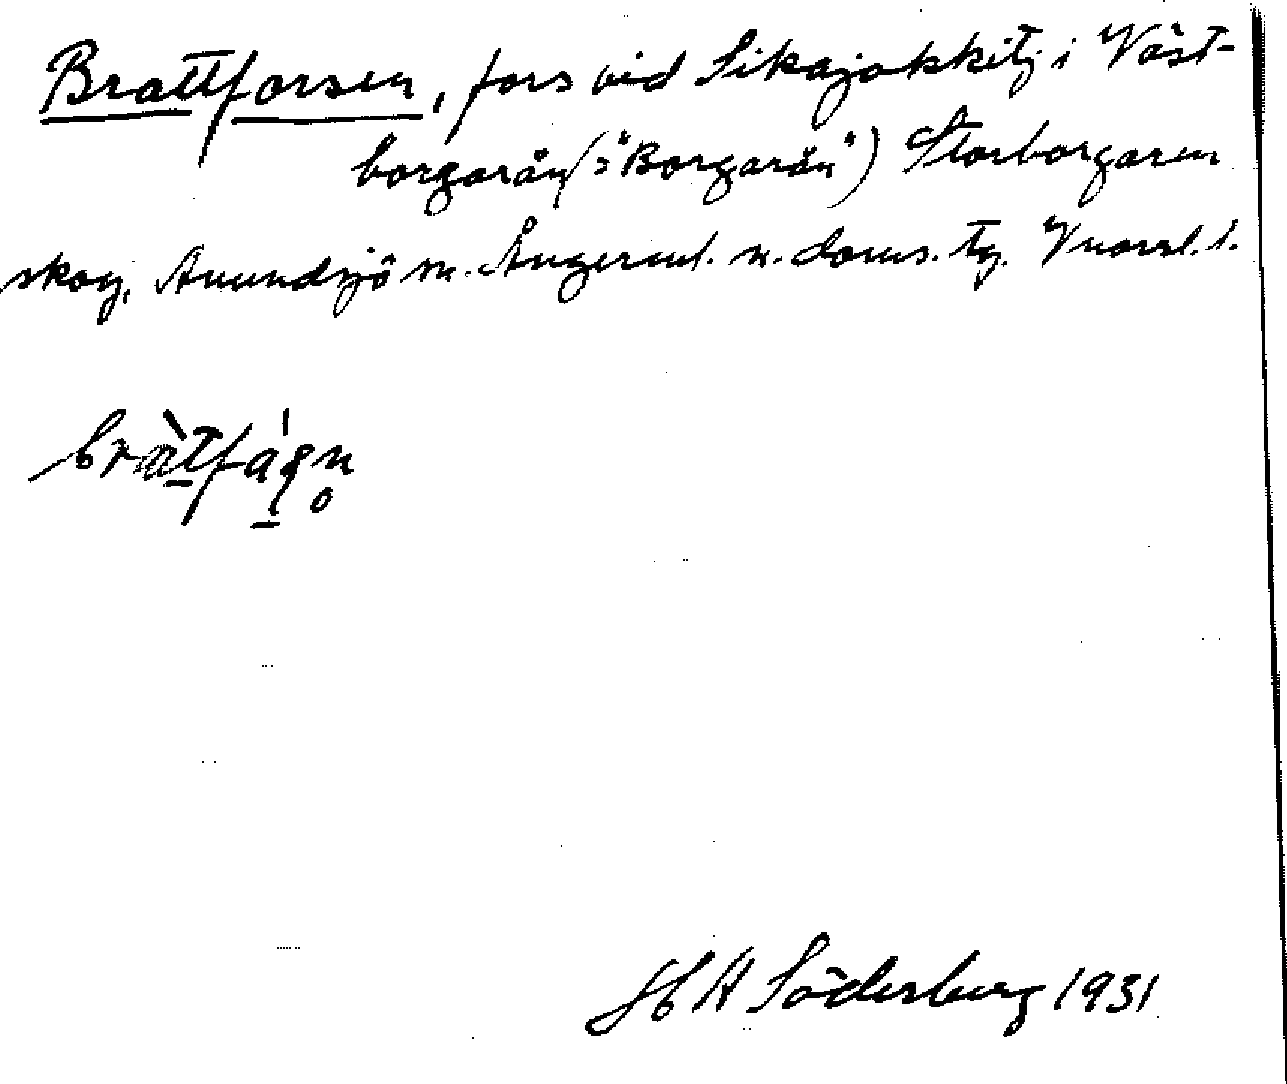 Brattforsen, fors vid Sikajokkitj i Väst-
borgarån (="Borgarån") Storborgaren
skog, Anundsjö m. Ångerml. n. doms. tg.
bràtfáʂn̥
H A Söderberg 1931